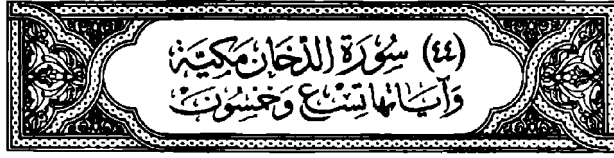 (٤٤) سُورَة الدُّخَان مَكِيَّة
وَآيَاتُهَا تِسْع وَخَمْسُون